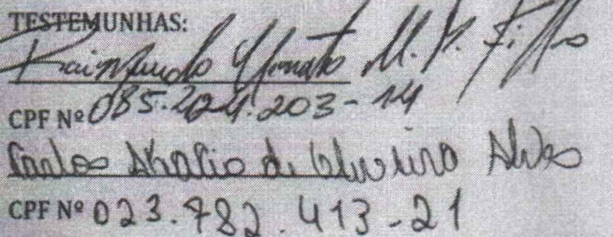 TESTEMUNHAS:
Raimundo Nonato M. F. Filho
CPF Nº 085.424.203-14
Carlos Atratio de Oliveira Alves
CPF Nº 023.782.413-21